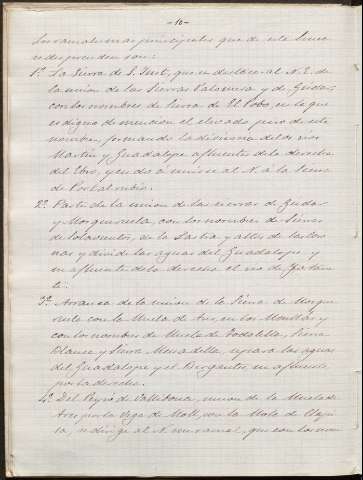 -10-
Los ramales mas principales que de esta linea
se desprenden son:
1º. La Sierra de S. Just, que se destaca al N.E. de
la union de las Sierras Palomera y de Gudar
con los nombres de Sierra de El Pobo, en la que
es digno de mencion el elevado pico de este
nombre, formando la divisoria de los rios
Martin y Guadalope afluentes de la derecha
del Ebro, y yendo a unirse al N. a la Sierra
de Portalrubio.
2º. Parte de la union de las sierras de Gudar
y Mosqueruela, con los nombres de Sierra
de de la Lastra y altos de
y divide las aguas del Guadalope y
su afluente de la derecha el rio de
3º. Arranca de la union de la Sierra de Mosque
ruela con la Muela de Ares, en los
con los nombres de Muela de Sierra
Blanca y Sierra separa las aguas
del Guadalope y el Bergantes su afluente
por la derecha.
4º. Del de Vallibona, union de la Muela de
Ares por la Vega de Moll, con la Mola de
se dirige al N. un ramal, que con los nom